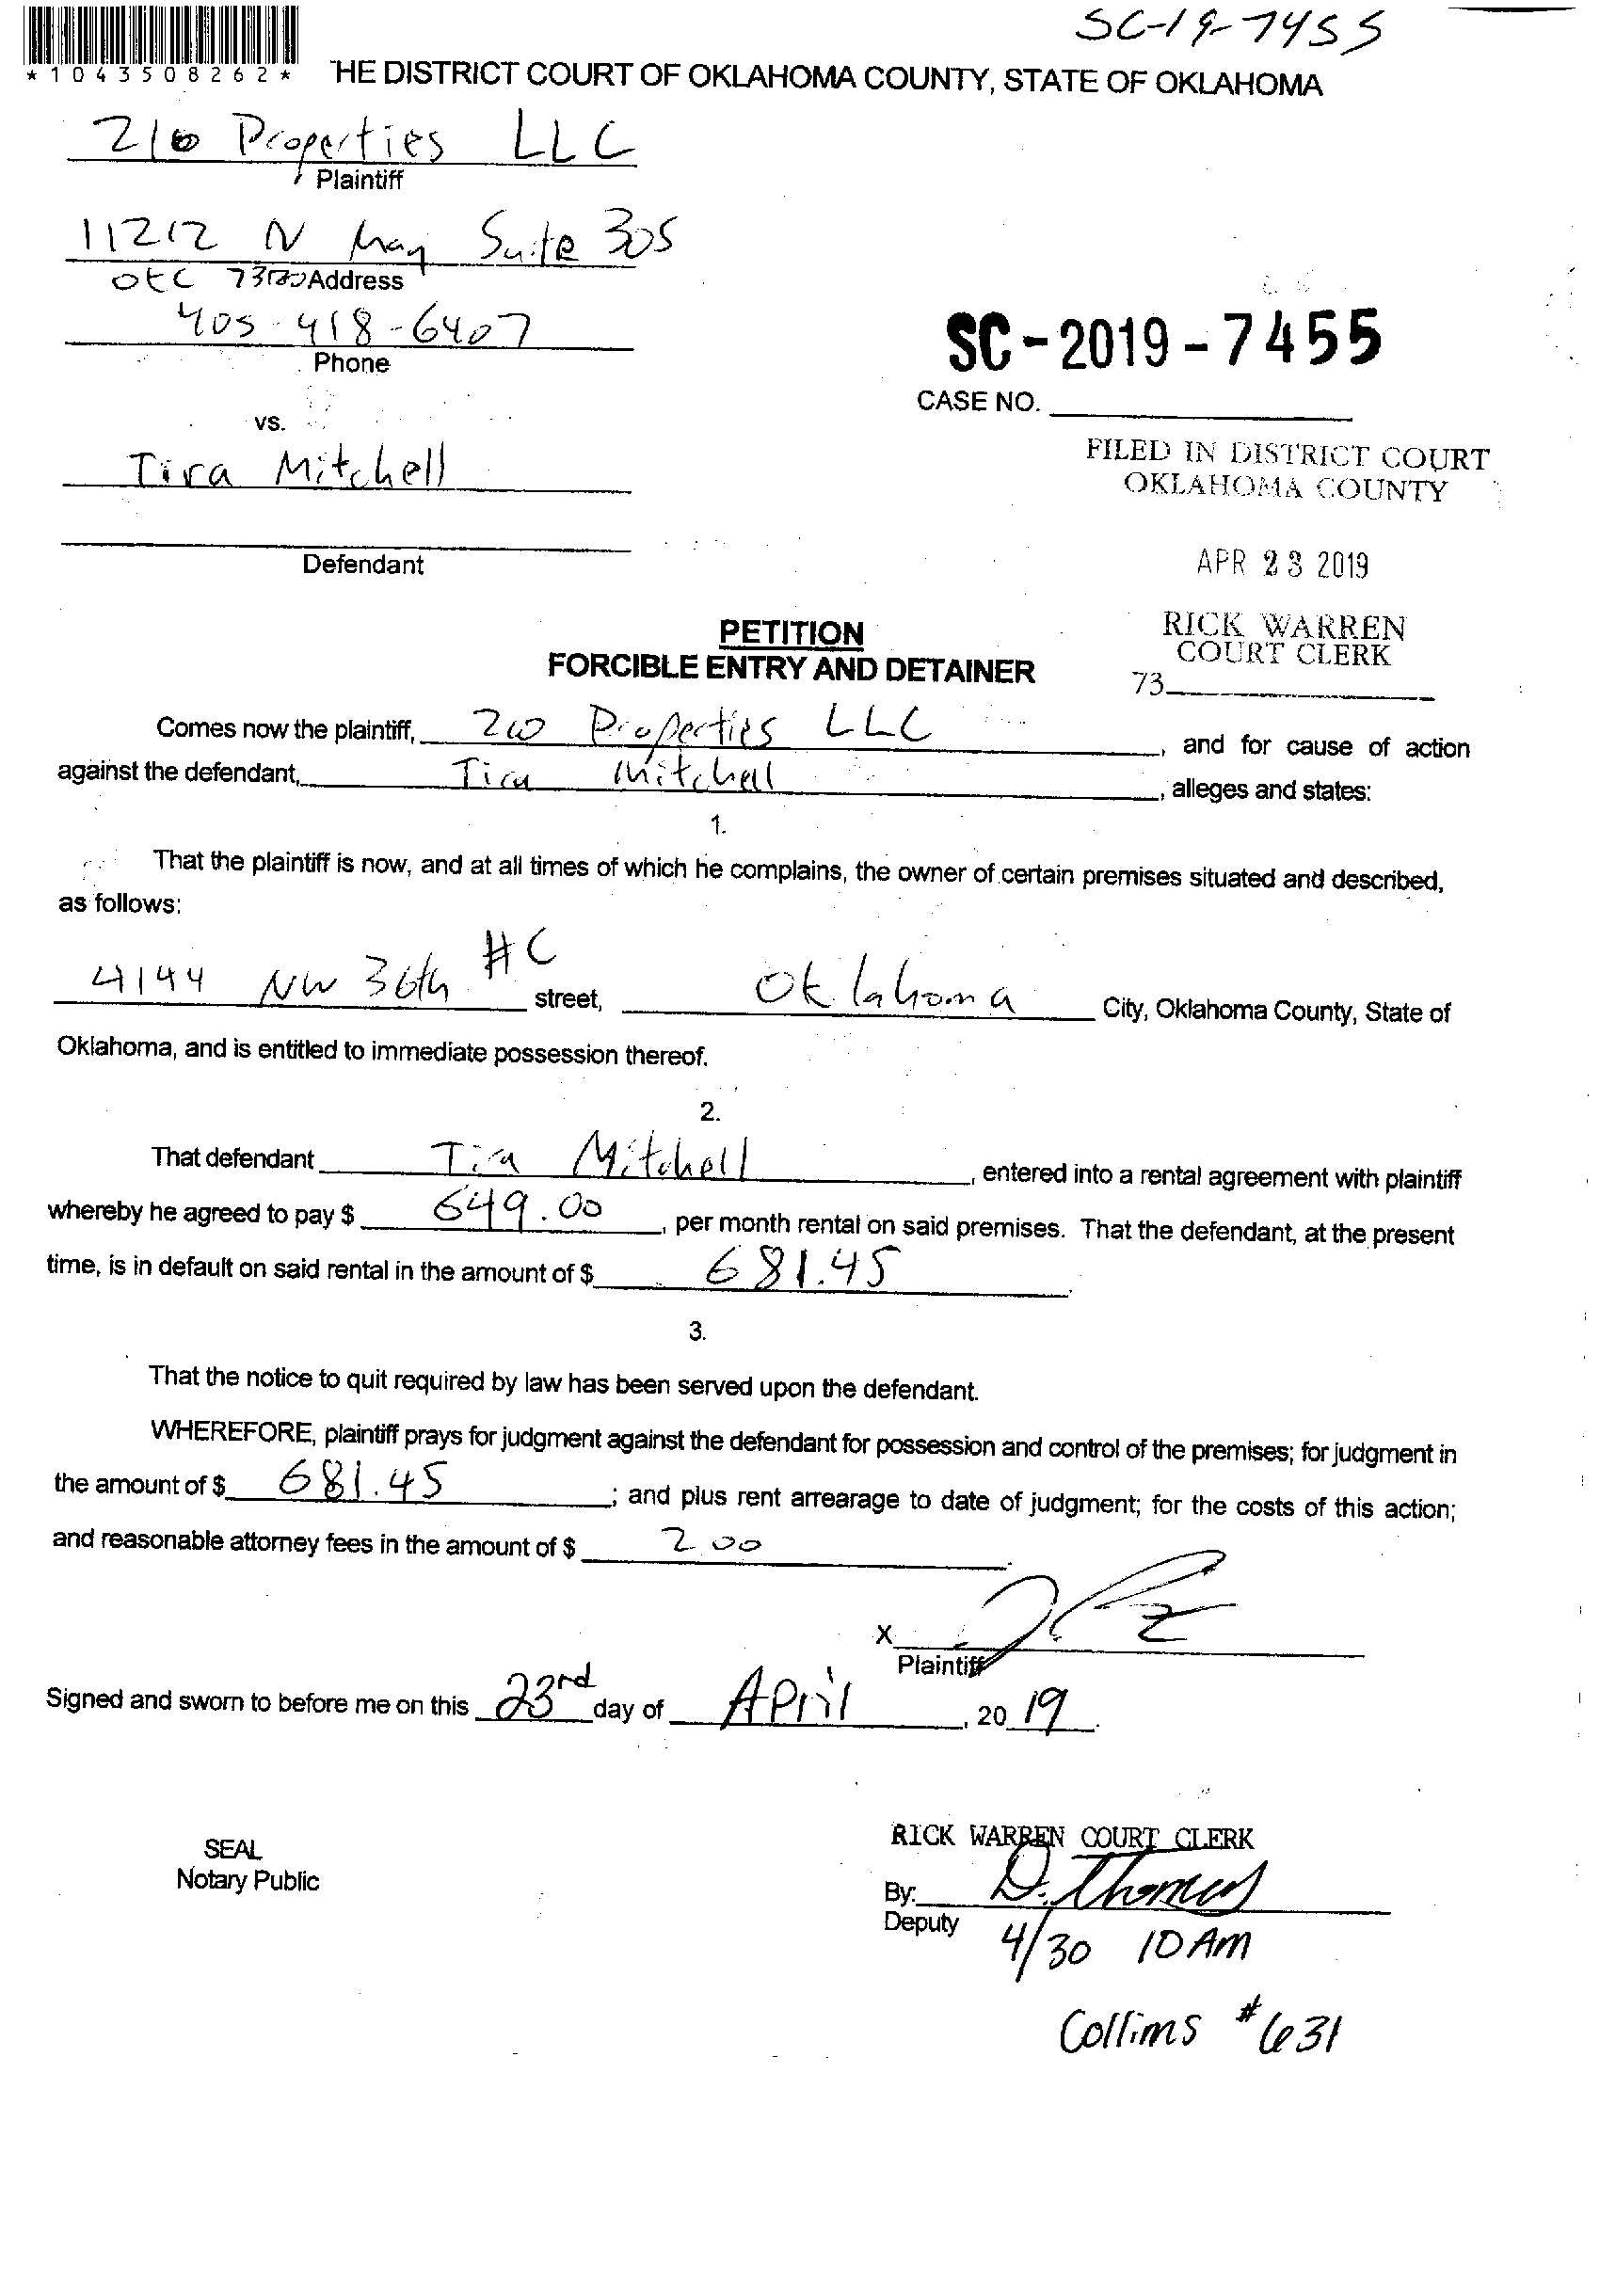 SC-19-7455
*1043508262*
HE DISTRICT COURT OF OKLAHOMA COUNTY, STATE OF OKLAHOMA
Properties LLC
Plaintiff
11212 N May Suite 305
OKC Address
405-418-6407
Phone
SC-2019-7455
CASE NO.
vs.
Tira Mitchell
Defendant
FILED IN DISTRICT COURT
OKLAHOMA COUNTY
APR 23 2019
RICK WARREN
COURT CLERK
73
PETITION
FORCIBLE ENTRY AND DETAINER
Comes now the plaintiff, Properties LLC, and for cause of action
against the defendant, Tira Mitchell, alleges and states:
1.
That the plaintiff is now, and at all times of which he complains, the owner of certain premises situated and described,
as follows:
4144 NW 36th #C street, Oklahoma City, Oklahoma County, State of
Oklahoma, and is entitled to immediate possession thereof.
2.
That defendant Tira Mitchell, entered into a rental agreement with plaintiff
whereby he agreed to pay $ 649.00, per month rental on said premises. That the defendant, at the present
time, is in default on said rental in the amount of $ 681.45.
3.
That the notice to quit required by law has been served upon the defendant.
WHEREFORE, plaintiff prays for judgment against the defendant for possession and control of the premises; for judgment in
the amount of $ 681.45; and plus rent arrearage to date of judgment; for the costs of this action;
and reasonable attorney fees in the amount of $ 200.
X
Plaintiff
Signed and sworn to before me on this 23rd day of April, 20 19.
SEAL
Notary Public
RICK WARREN COURT CLERK
By: D. Thomas
Deputy
4/30 10 AM
Collins #631